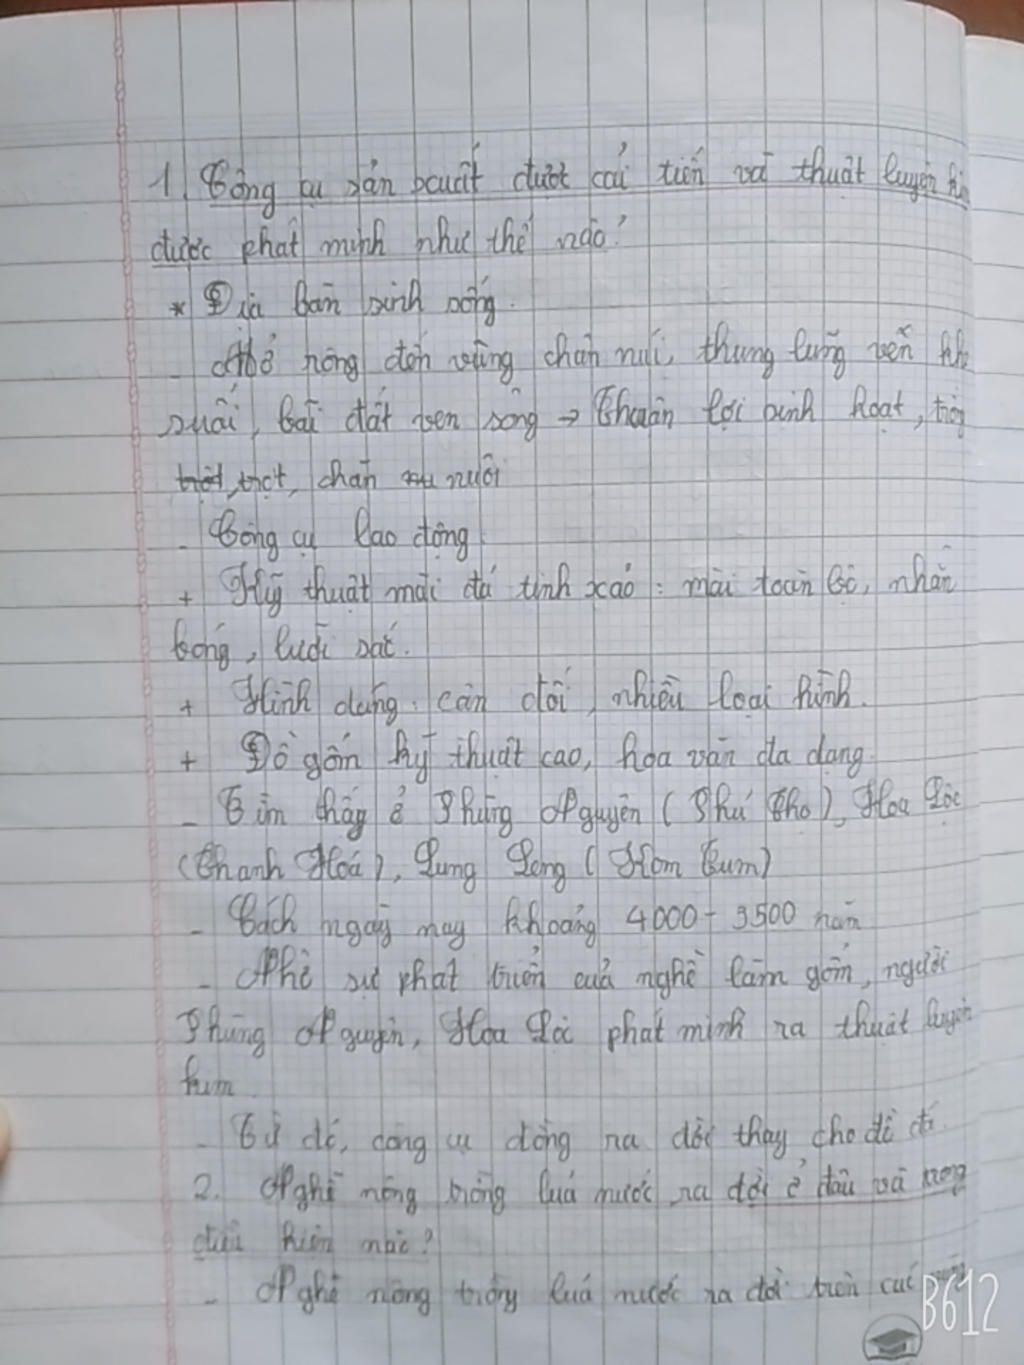 1. Công cụ sản xuất được cải tiến và thuật luyện kim
được phát minh như thế nào?
* Địa bàn sinh sống.
- Mở rộng đến vùng chân núi, thung lũng ven khe
suối, bãi đất ven sông → Thuận lợi sinh hoạt, trồng
trọt, chăn nuôi
- Công cụ lao động
+ Kỹ thuật mài đá tinh xảo: mài toàn bộ, nhẵn
bóng, lưỡi sắc.
+ Hình dáng: cân đối, nhiều loại hình.
+ Đồ gốm kỹ thuật cao, hoa văn đa dạng.
- Tìm thấy ở Phùng Nguyên (Phú Thọ), Hoa Lộc
(Thanh Hoá), Lung Leng (Kom Tum)
- Cách ngày nay khoảng 4000 - 3500 năm
- Nhờ sự phát triển của nghề làm gốm, người
Phùng Nguyên, Hoa Lộc phát minh ra thuật luyện
kim.
- Từ đó, công cụ đồng ra đời thay cho đồ đá.
2. Nghề nông trồng lúa nước ra đời ở đâu và trong
điều kiện nào?
- Nghề nông trồng lúa nước ra đời trên các
B612